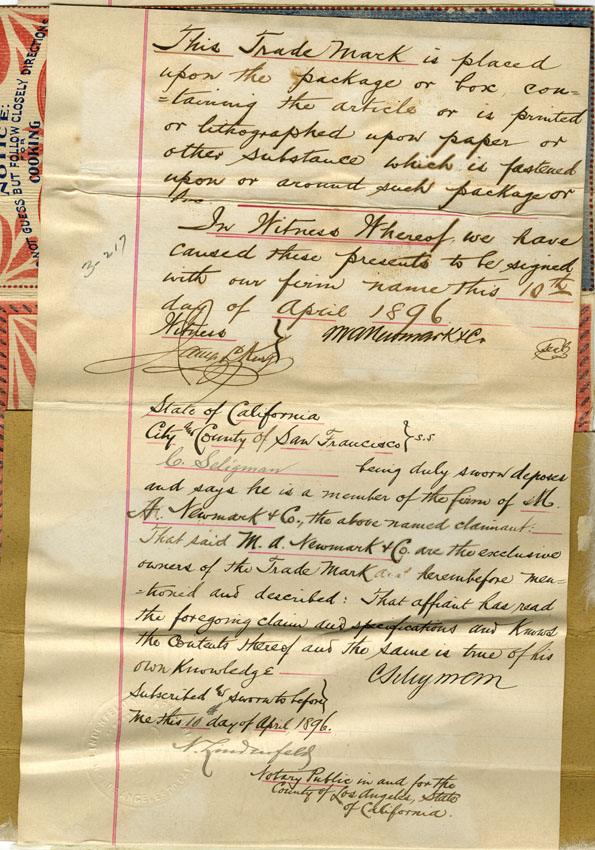 NOTICE:
NOT GUESS BUT FOLLOW CLOSELY DIRECTION
FOR
COOKING
This Trade Mark is placed
upon the package or box, con=
=taining the article or is printed
or lithographed upon paper or
other substance which is fastened
upon or around such package or
box.
In Witness Whereof, we have
caused these presents to be signed
with our firm name this 10th
day of April 1896.
Witness
M A Newmark & Co.
Seal
3-217
State of California
City and County of San Francisco } S.S
C. Seligman being duly sworn deposes
and says he is a member of the firm of M.
A. Newmark & Co., the above named claimant:
That said M. A. Newmark & Co. are the exclusive
owners of the Trade Mark hereinbefore men=
=tioned and described: That affiant has read
the foregoing claim and specifications and knows
the contents thereof and the same is true of his
own knowledge
C Seligman
Subscribed and sworn to before
me this 10 day of April, 1896.
N. Lindenfeld
Notary Public in and for the
County of Los Angeles, State
of California.